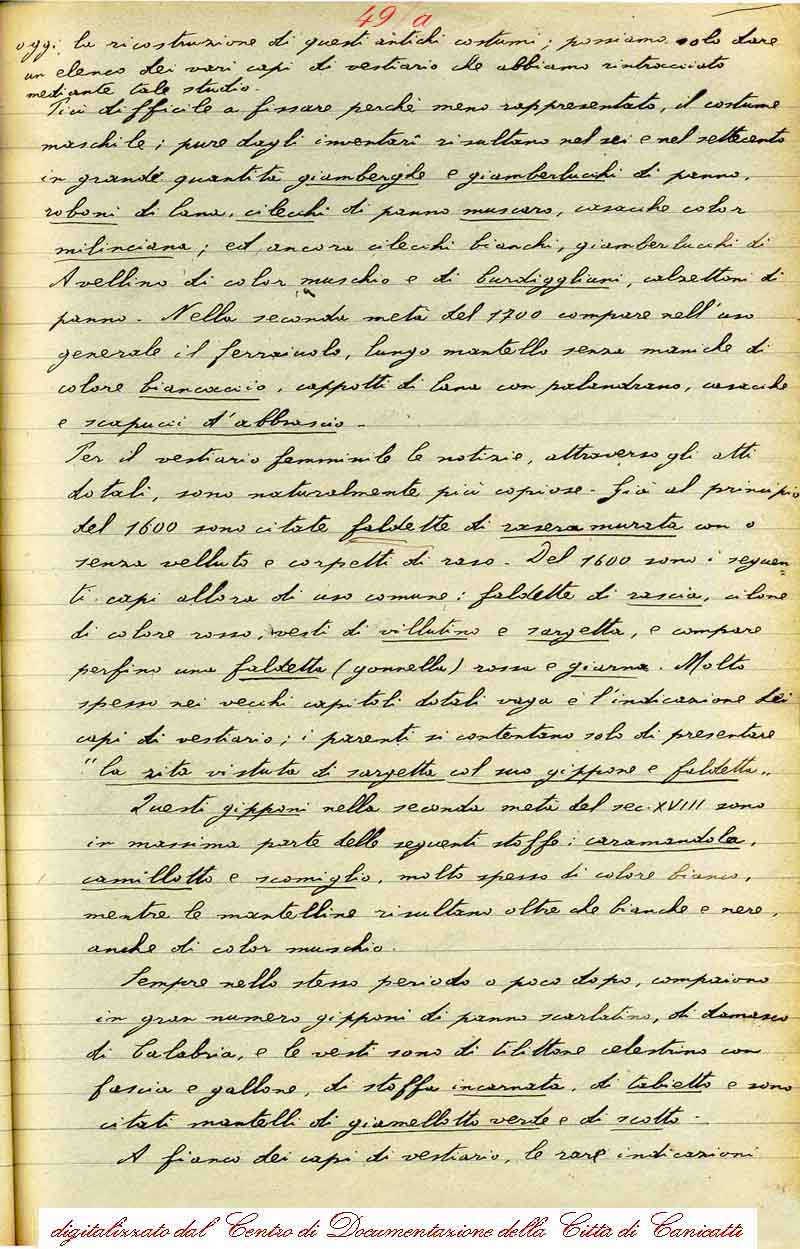 49 a
oggi la ricostruzione di questi antichi costumi; possiamo solo dare
un elenco dei vari capi di vestiario che abbiamo rintracciato
mediante tale studio.
Più difficile a fissare perché meno rappresentato, il costume
maschile; pure dagli inventarî risultano nel sei e nel settecento
in grande quantità giamberghe e giamberlucchi di panno,
roboni di lana, cilecchi di panno muscaro, casacche color
milinciana; ed ancora cilecchi bianchi, giamberlucchi di
Avellino di color muschio e di burdiggliuni, calzettoni di
panno. Nella seconda metà del 1700 compare nell'uso
generale il ferraiuolo, lungo mantello senza maniche di
colore biancaccio, cappotti di lana con palandrano, casacche
e scapucci d'abbrascio.
Per il vestiario femminile le notizie, attraverso gli atti
dotali, sono naturalmente più copiose. Già al principio
del 1600 sono citate faldette di rasera murata con o
senza velluto e corpetti di raso. Del 1600 sono i seguen-
ti capi allora di uso comune: faldette di rascia, cilone
di colore rosso, vesti di villutino e sargetta, e compare
perfino una faldetta (gonnella) rossa e giarna. Molto
spesso nei vecchi capitoli dotali vaga è l'indicazione dei
capi di vestiario; i parenti si contentano solo di presentare
"la zita vistuta di sargetta col suo gippone e faldetta„
Questi gipponi nella seconda metà del sec. XVIII sono
in massima parte delle seguenti stoffe: caramandola,
camillotto e scomiglio, molto spesso di colore bianco,
mentre le mantelline risultano oltre che bianche e nere,
anche di color muschio.
Sempre nello stesso periodo o poco dopo, compaiono
in gran numero gipponi di panno scarlatino, di damasco
di Calabria, e le vesti sono di tilittone celestrino con
fascia e gallone, di stoffa incarnata, di tabietto e sono
citati mantelli di giamellotto verde e di scotto.
A fianco dei capi di vestiario, le rare indicazioni
digitalizzato dal Centro di Documentazione della Città di Canicattì